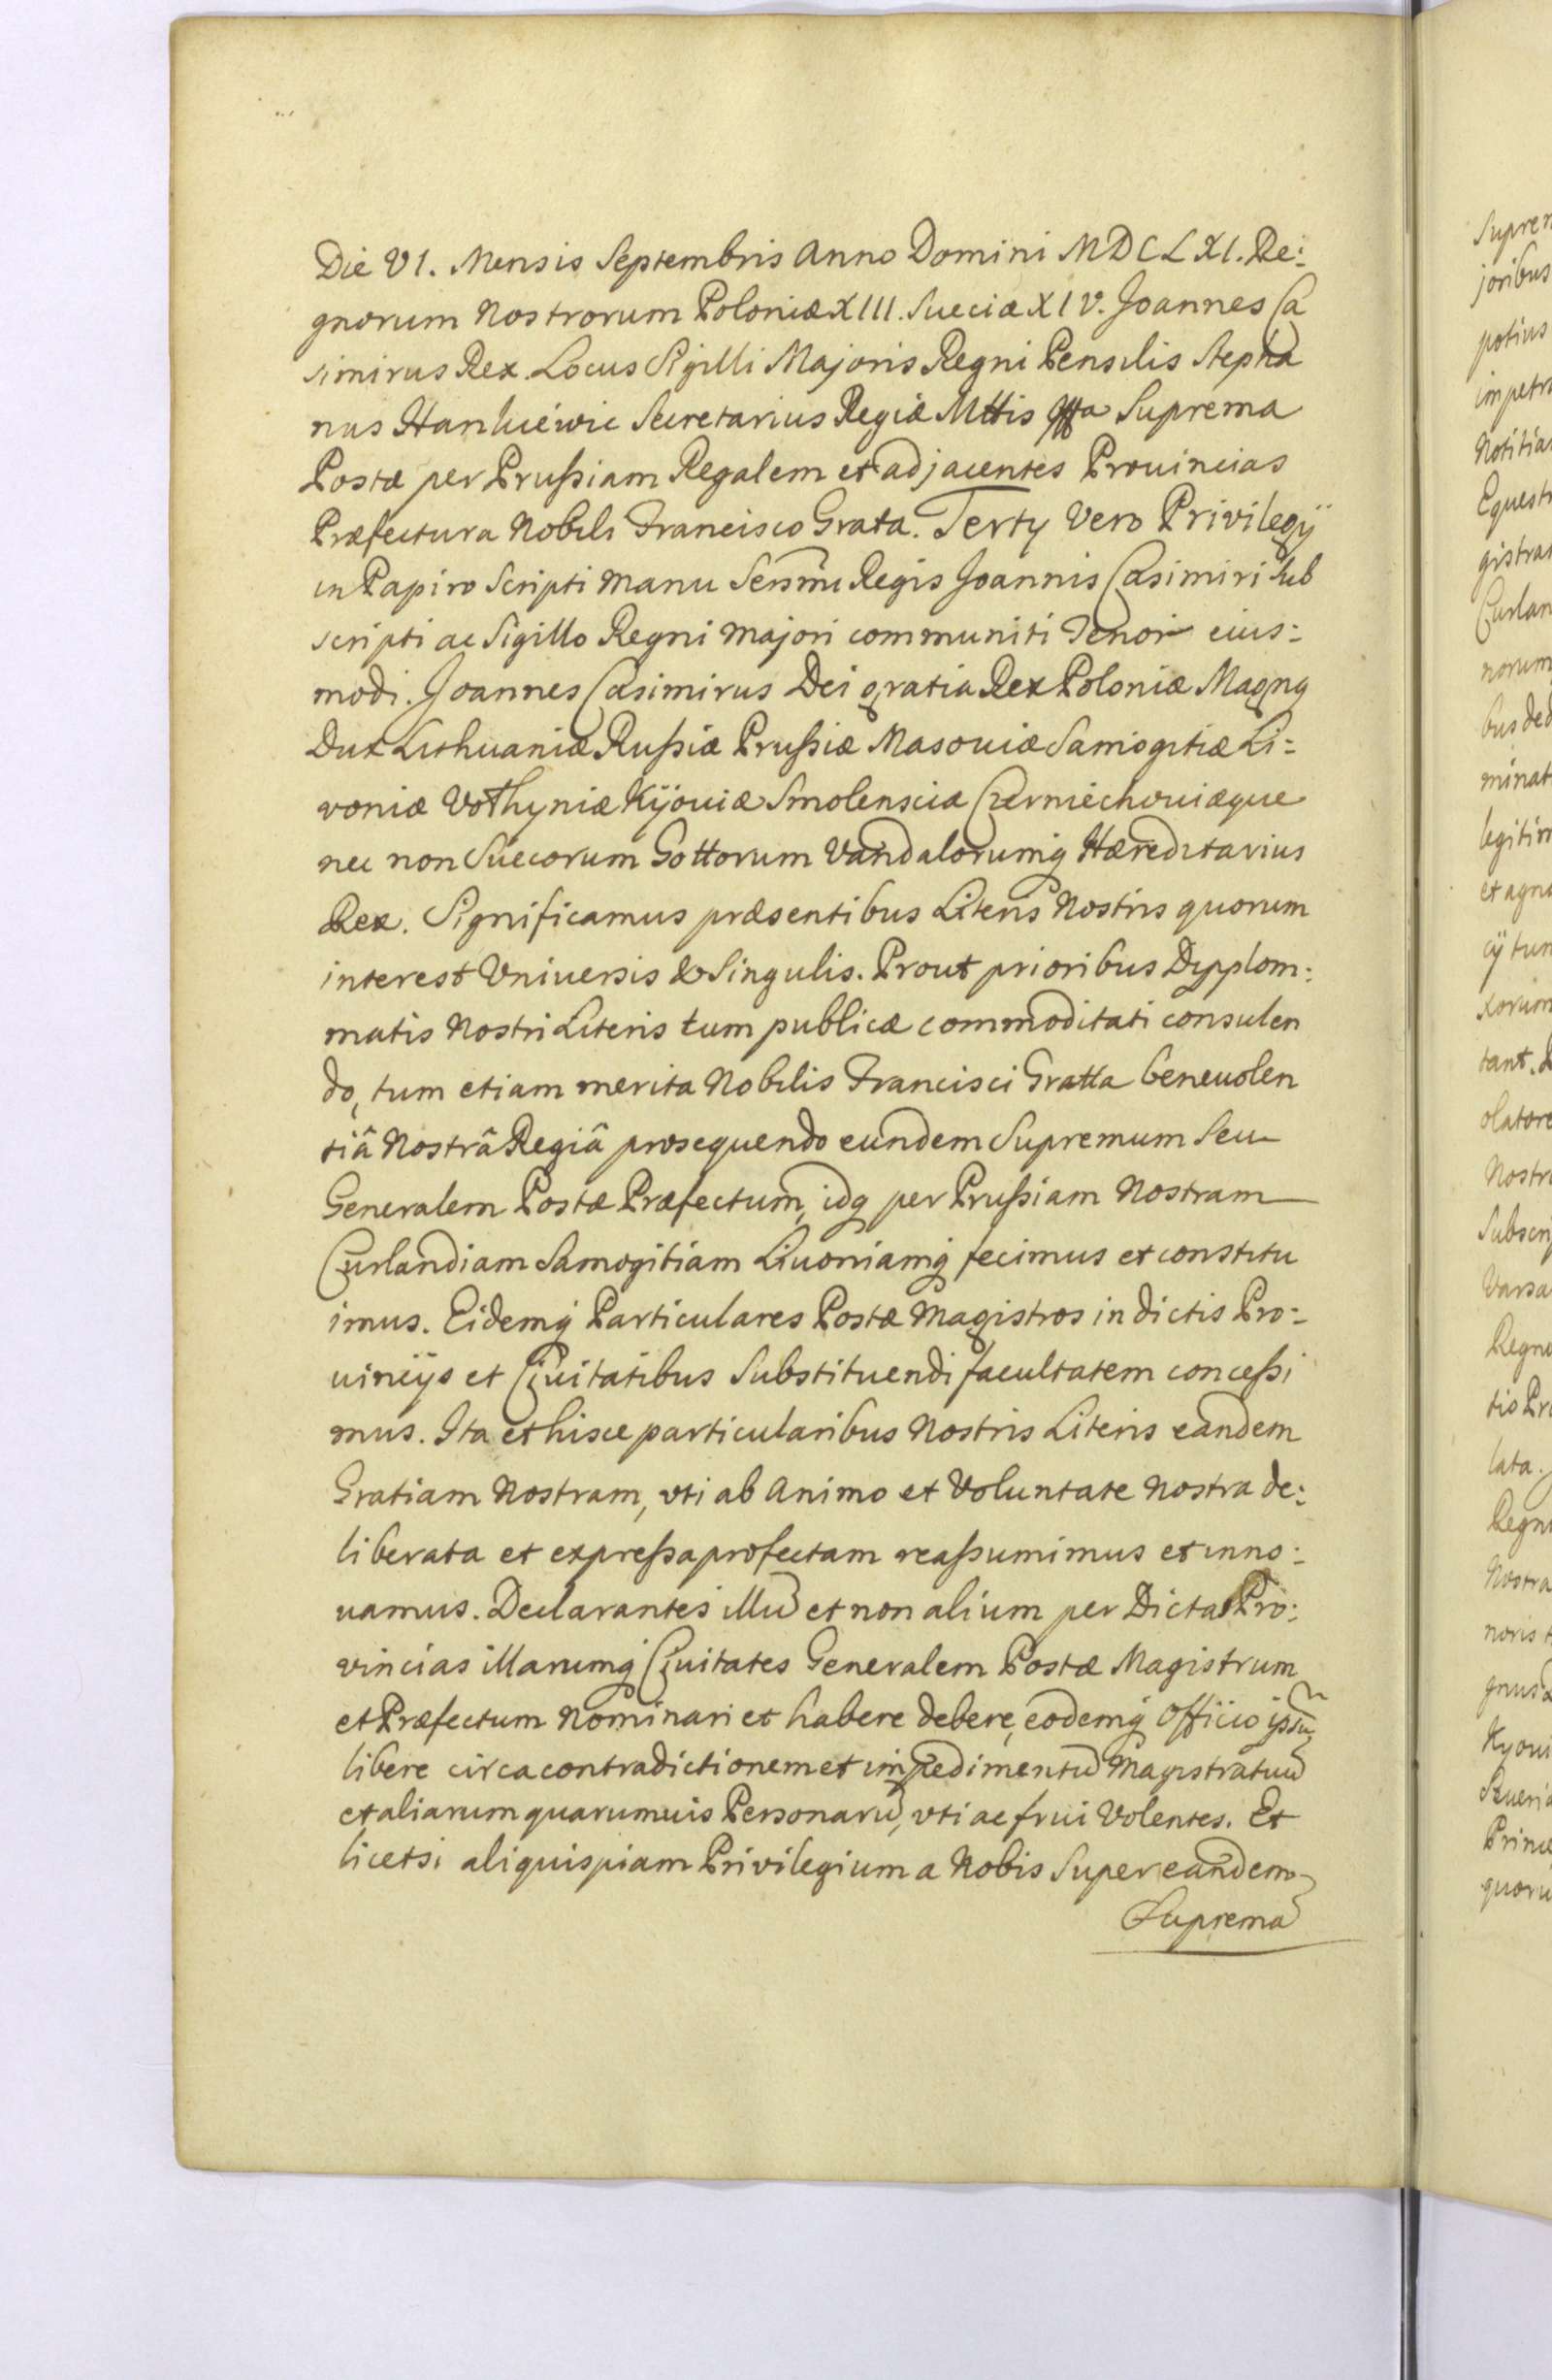 Die VI. Mensis Septembris Anno Domini MDCLXI. Re:
gnorum Nostrorum Poloniæ XIII. Sueciæ XIV. Joannes Ca
simirus Rex. Locus Sigilli Majoris Regni Pensilis Stepha
nus Hankiéwic Secretarius Regiæ Mttis Suprema
Postæ per Prußiam Regalem et adjacentes Prouincias
Præfectura Nobili Francisco Grata. Tertÿ Vero Privilegÿ
in Papiro Scripti manu Serismi Regis Joannis Casimiri sub
scripti ac Sigillo Regni majori communiti Tenor eius:
modi. Joannes Casimirus Dei gratia Rex Poloniæ Magnq
Dux Lithuaniæ Rußiæ Prußiæ Masouiæ Samogitiæ Li:
voniæ Volhyniæ Kÿouiæ Smolensciæ Czerniechouiæque
nec non Suecorum Gottorum Vandalorumq́ Hæreditarius
Rex. Significamus præsentibus Literis Nostris quorum
interest Vniuersis & Singulis. Prout prioribus Dyplom:
matis Nostri Literis tum publicæ commoditati consulen
do, tum etiam merita Nobilis Francisci Gratta beneuolen
tiâ Nostrâ Regiâ prosequendo eundem Supremum Seu
Generalem Postæ Præfectum, idq per Prußiam Nostram
Curlandiam Samogitiam Liuoniamq́ fecimus et constitu
imus. Eidemq́ Particulares Postæ Magistros in dictis Pro:
uincÿs et Ciuitatibus Substituendi facultatem conceßi
mus. Ita et hisce particularibus Nostris Literis eandem
Gratiam Nostram, vti ab Animo et Voluntate Nostra de:
liberata et expreßa profectam reaßumimus et inno:
uamus. Declarantes illū et non alium per Dictas Pro:
vincias illarumq́ Ciuitates Generalem Postæ Magistrum
et Præfectum Nominari et habere debere, eodemq́ Officio ipsū
libere circa contradictionem et impedimentū Magistratuū
et aliarum quarumuis Personarū, vti ac frui Volentes. Et
licet si aliquispiam Privilegium a Nobis Super eandem
Supremā